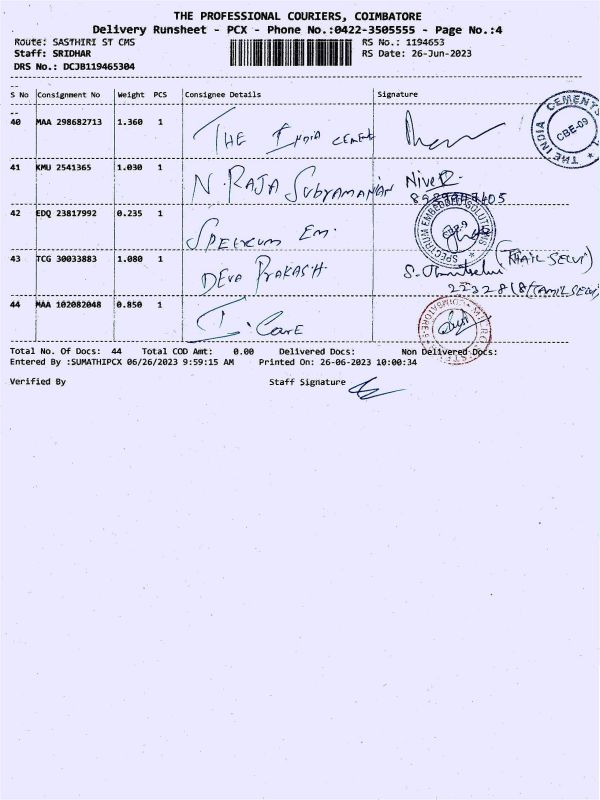 THE PROFESSIONAL COURIERS, COIMBATORE
Delivery Runsheet - PCX - Phone No.:0422-3505555 - Page No.:4
Route: SASTHIRI ST CMS RS No.: 1194653
Staff: SRIDHAR RS Date: 26-Jun-2023
DRS No.: DCJB119465304
S No Consignment No Weight PCS Consignee Details Signature
40 MAA 298682713 1.360 1 THE INDIA CEMENT
THE INDIA CEMENTS CBE-09
41 KMU 2541365 1.030 1 N. RAJA SUBRAMANIAN Nive D.
42 EDQ 23817992 0.235 1 SPECTRUM Em.
SPECTRUM EMBEDDED SOLUTIONS
43 TCG 30033883 1.080 1 DEVA PRAKASH
(TAMIL SELVI)
44 MAA 102082048 0.850 1 I. CARE
Total No. Of Docs: 44 Total COD Amt: 0.00 Delivered Docs: Non Delivered Docs:
Entered By :SUMATHIPCX 06/26/2023 9:59:15 AM Printed On: 26-06-2023 10:00:34
Verified By Staff Signature